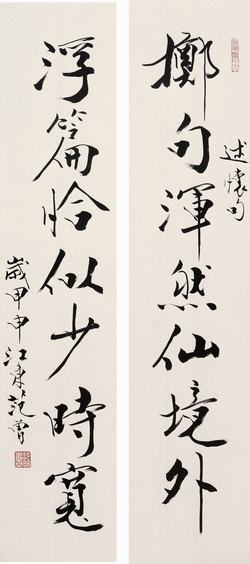 擲句渾然仙境外
述懷句
浮篇恰似少時寬
歲甲申江東范曾